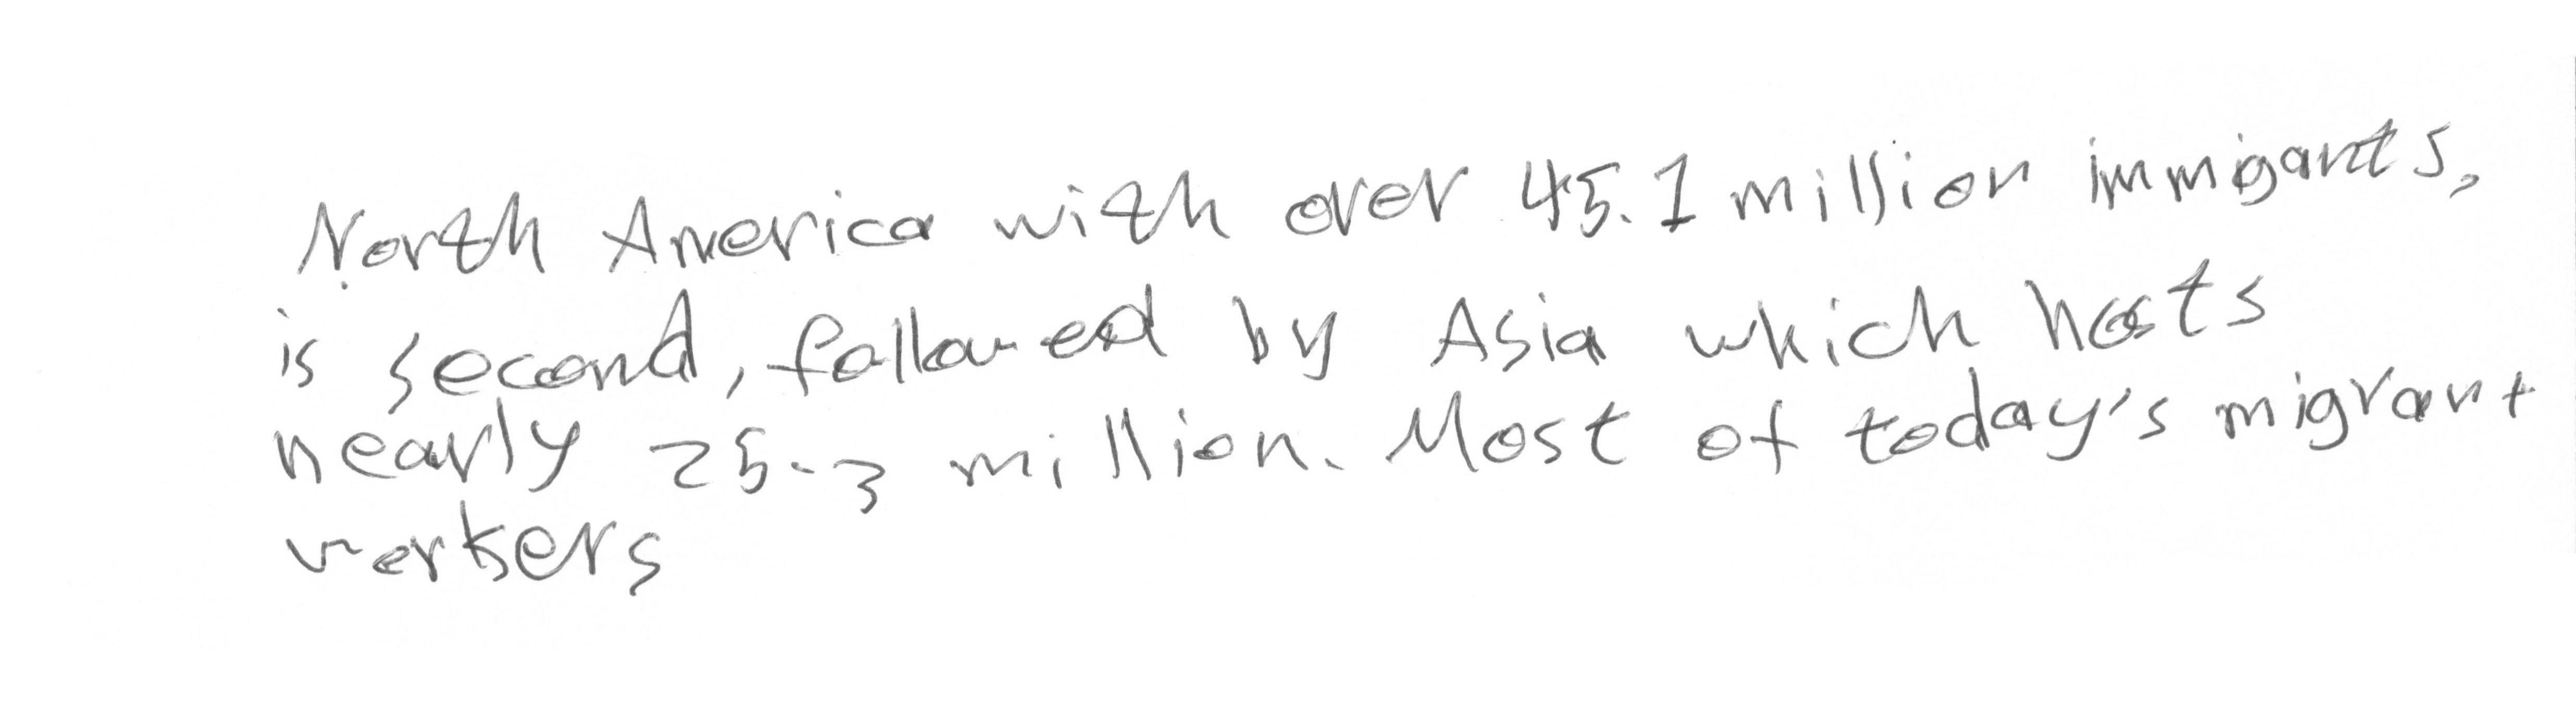 North America with over 45.1 million immigants,
is second, followed by Asia which hosts
nearly 25.3 million. Most of today's migrant
workers